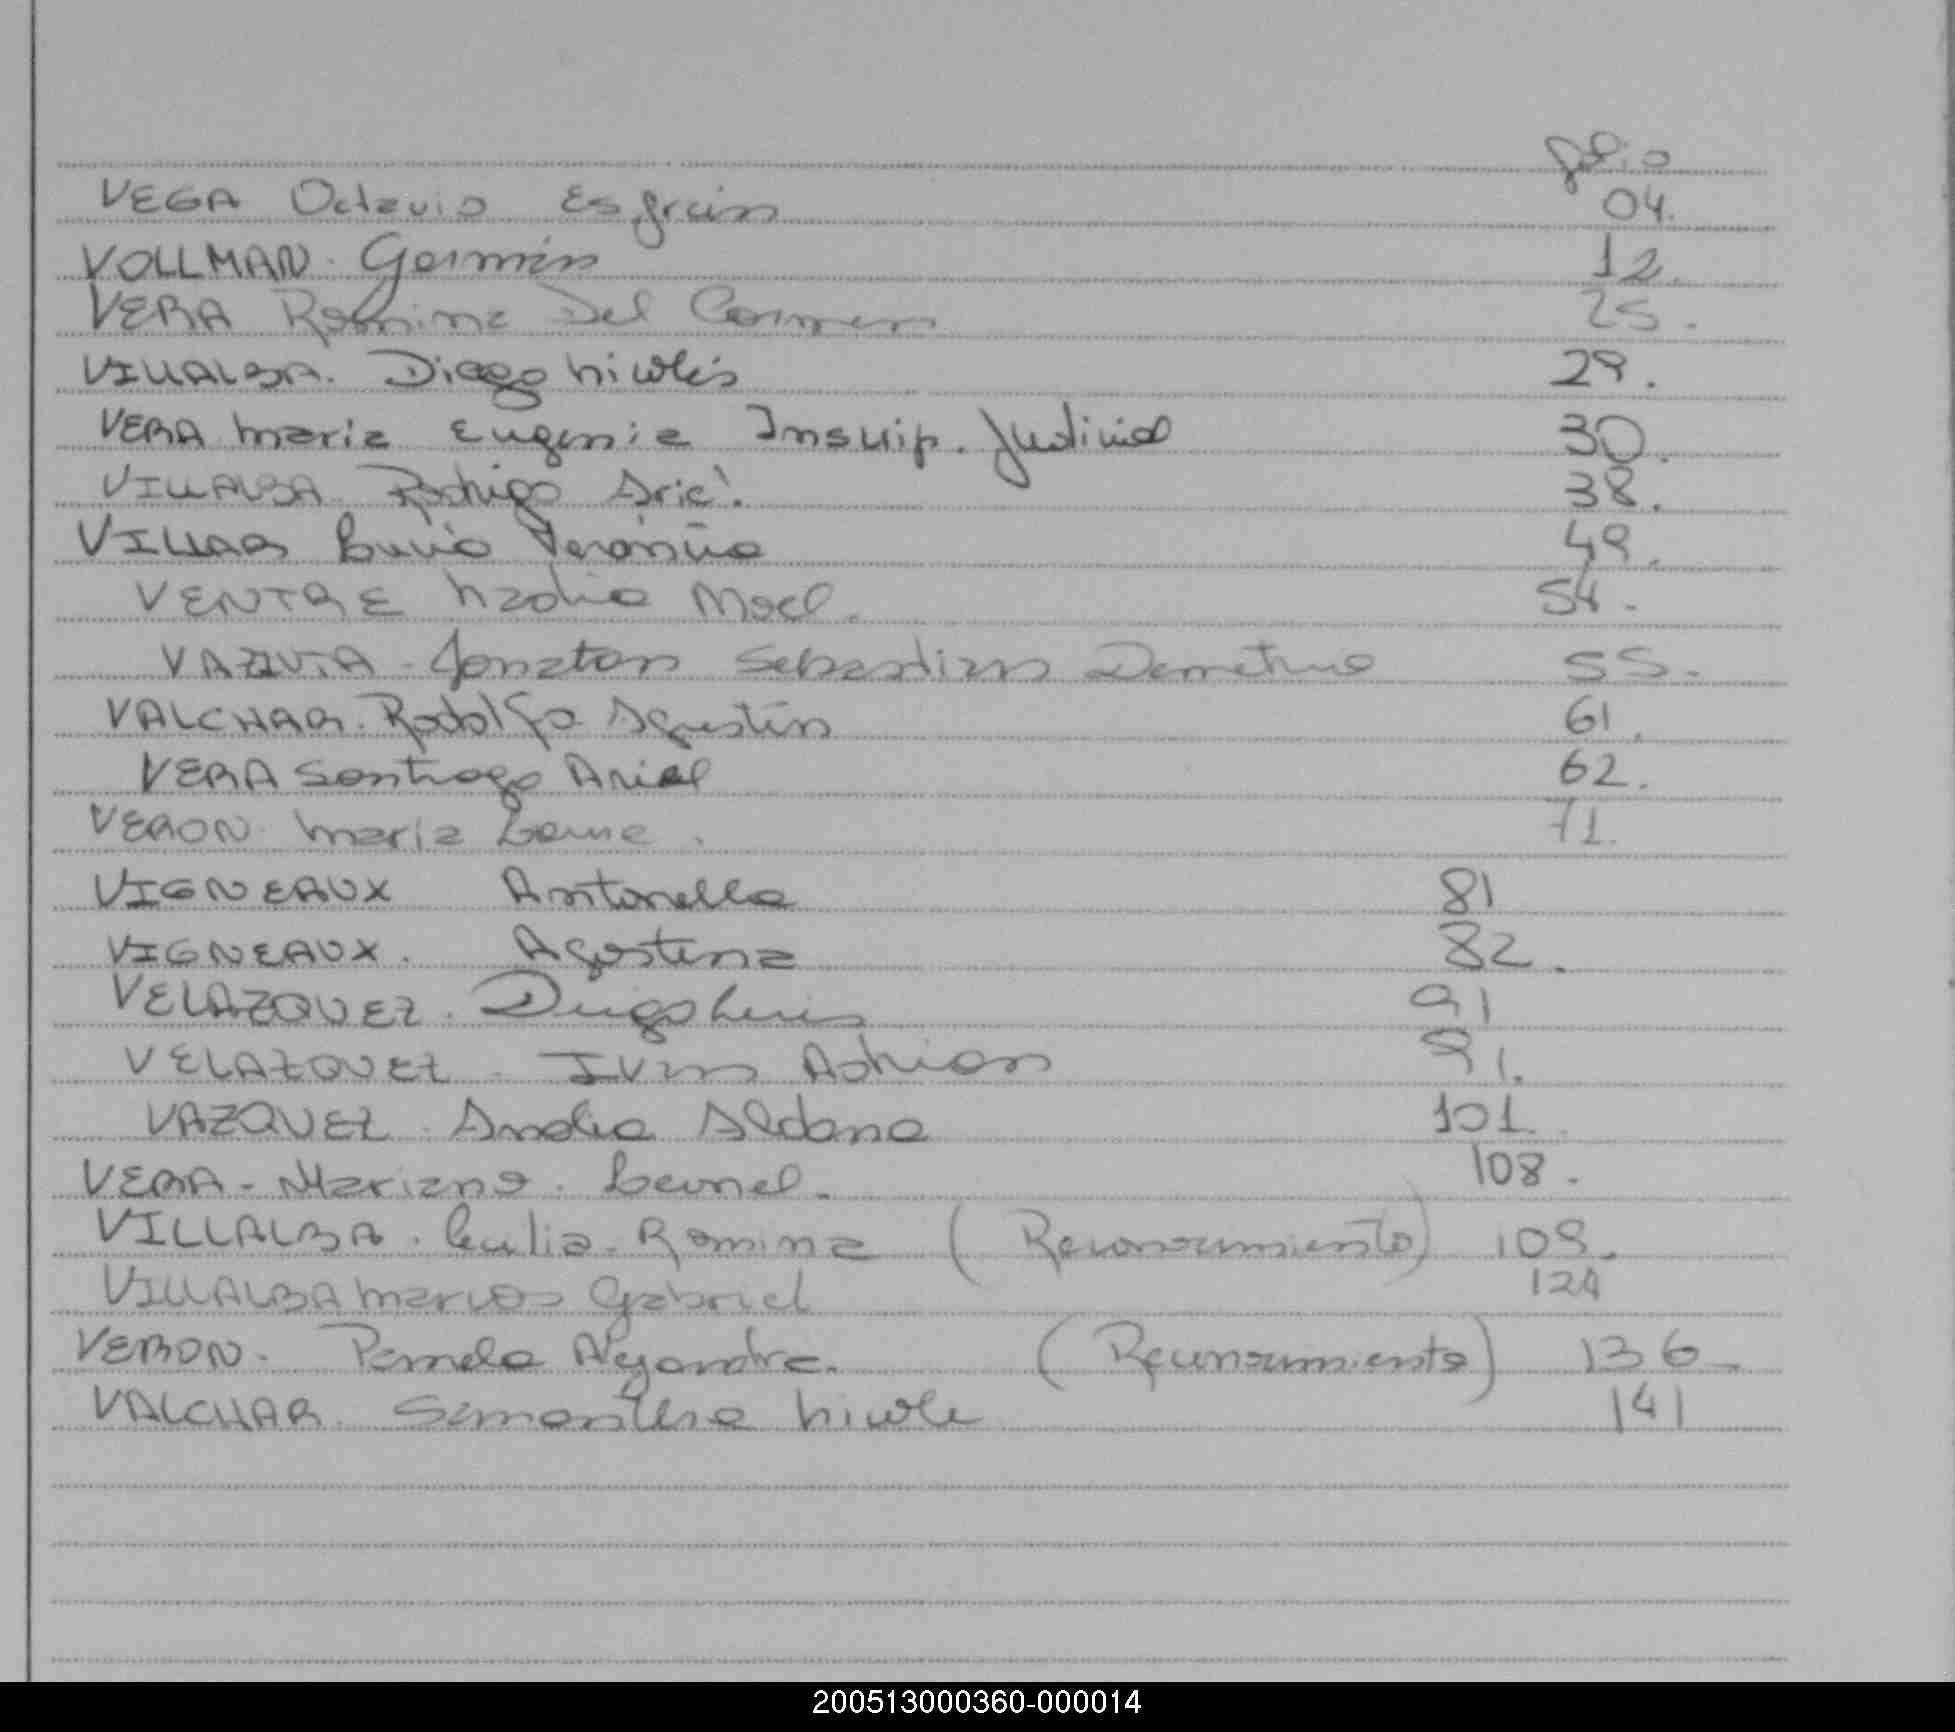 folio
VEGA Octavio Esfrain 04.
VOLLMAN. Germán 12.
VERA Romina Del Carmen 25.
VILLALBA. Diego Nicolás 29.
VERA Maria Eugenia Inscrip. Judicial 30.
VILLALBA Rodrigo Uriel. 38.
VILLAR Lucía Verónica 49.
VENTRE Nadia Mael. 54.
Jonatan Sebastian Demetrio 55.
VALCHAR. Rodolfo Agustín 61.
VERA Santiago Ariel 62.
VERON. Maria 71.
VIGNEAUX Antonella 81
VIGNEAUX. Agostina 82.
VELAZQUEZ. Diego Luis 91
VELAZQUEZ - Ivan Adrian 91.
VAZQUEZ. Analia Aldana 101.
VERA - Mariano. Leonel. 108.
VILLALBA. Romina (Reconocimiento) 109.
VILLALBA Marcos Gabriel 124
VERON. Pamela Alejandra. (Reconocimiento) 136.
VALCHAR. Samantha Nicole 141
200513000360-000014